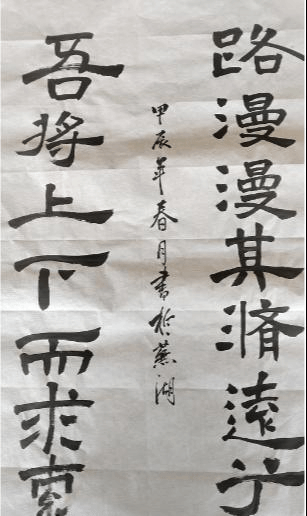 路漫漫其脩遠兮
甲辰年春月書於蕪湖
吾將上下而求索